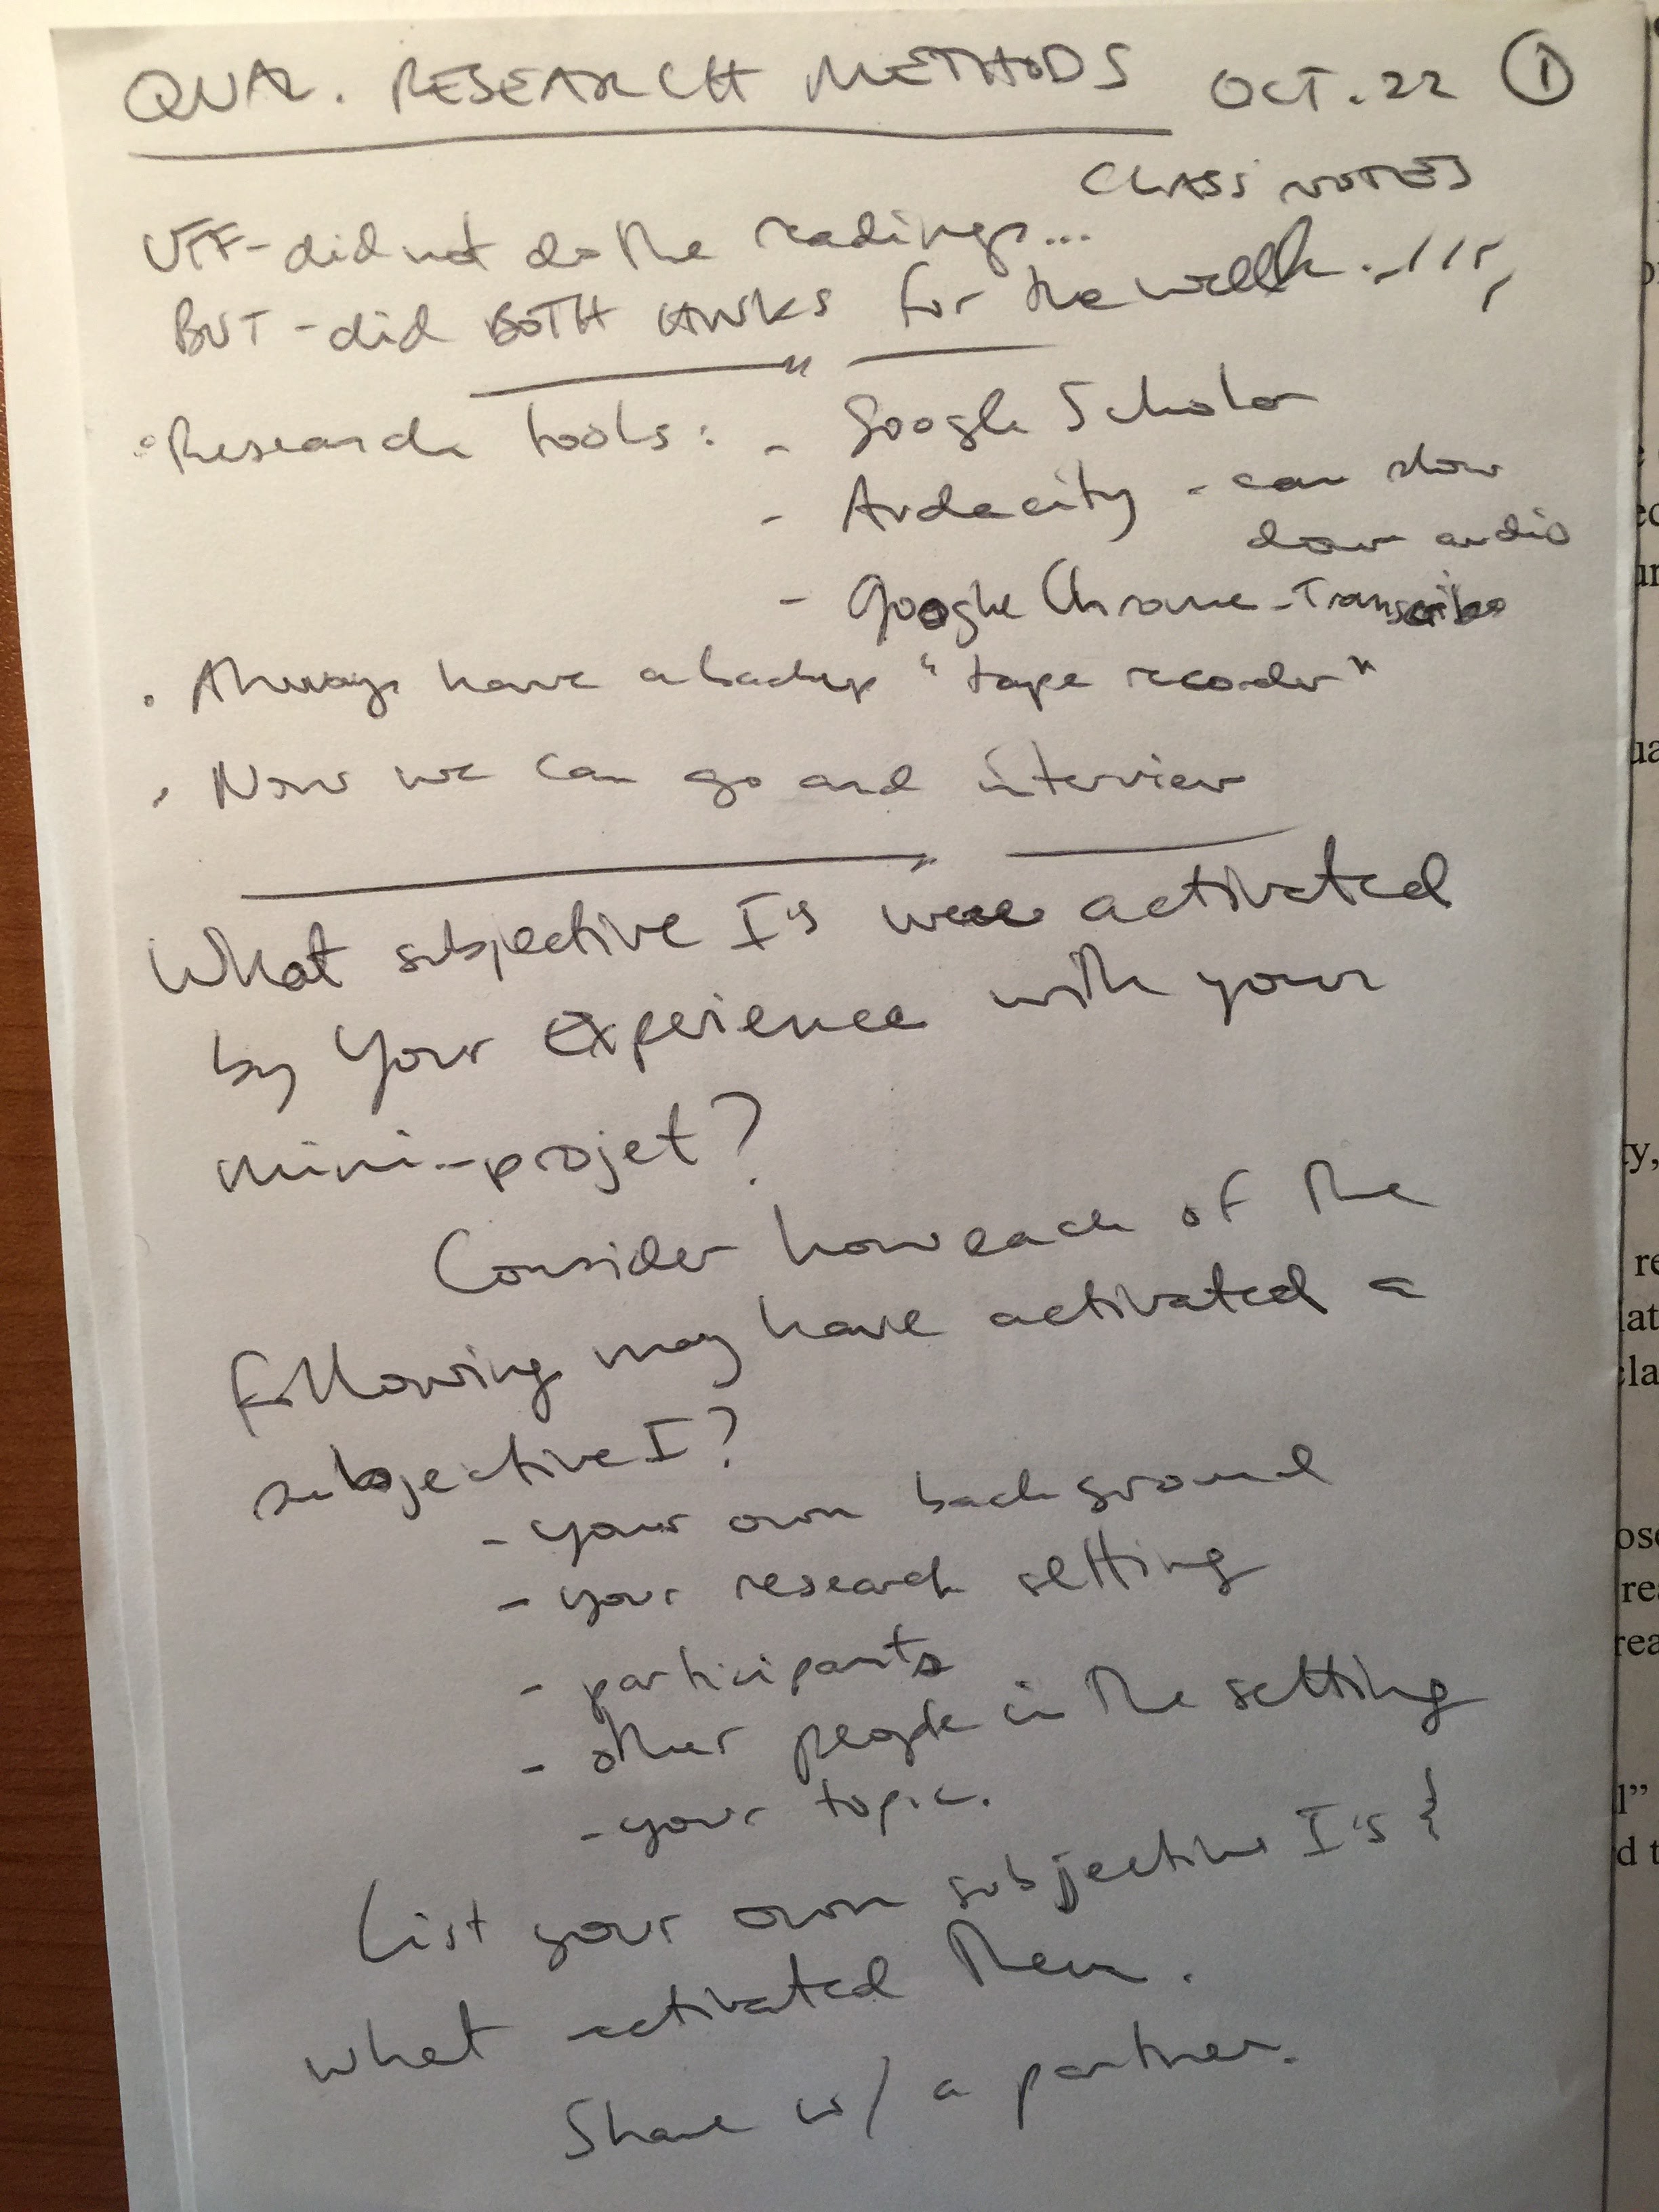 QUAL. RESEARCH METHODS OCT. 22 ①
CLASS NOTES
UFF-did not do the readings...
BUT-did BOTH HWKs for the week...!!!
• Research tools: - Google Scholar
- Audacity - can slow
down audio
- Google Chrome-Transcribe
• Always have a backup "tape recorder"
• Now we can go and interview
What subjective I's were activated
by your experience with your
mini-projet?
Consider how each of the
following may have activated a
subjective I?
- your own background
- your research setting
- participants
- other people in the setting
- your topic.
List your own subjective I's &
what activated them.
Share w/ a partner.
ty,
re
lat
cla
ose
re
rea
l”
d t